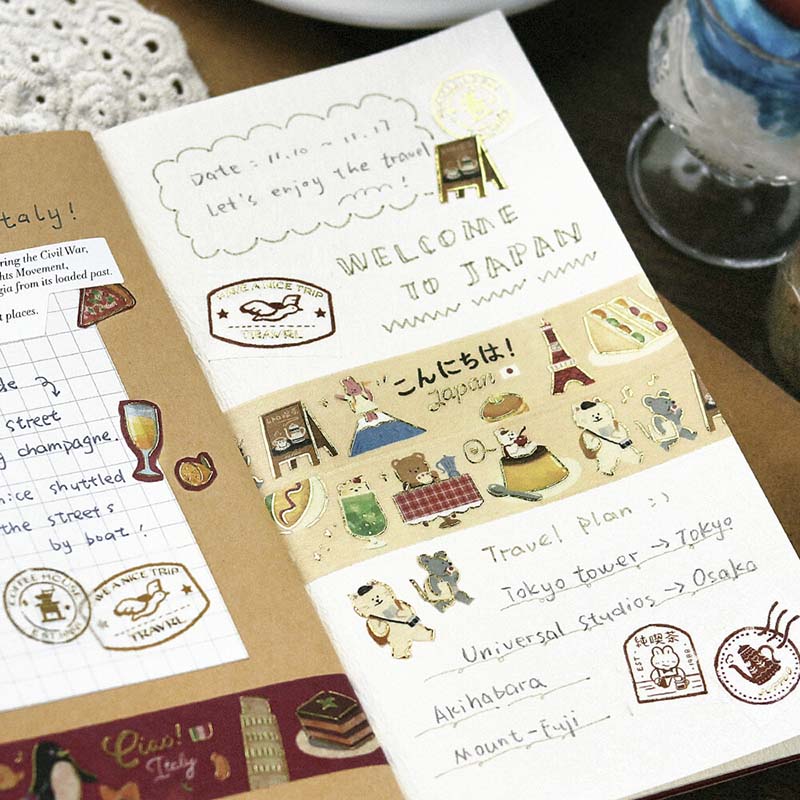 taly!
ring the Civil War,
hts Movement,
gia from its loaded past.
t places.
de
street
g champagne.
nice shuttled
the streets
by boat!
COFFEE HOUSE
HAVE A NICE TRIP
TRAVEL
Ciao!
Italy
Date : 11.10 ~ 11.17
Let's enjoy the travel
!
WELCOME
TO JAPAN
HAVE A NICE TRIP
TRAVEL
こんにちは!
Japan
Travel plan :)
Tokyo tower → Tokyo
Universal Studios → Osaka
Akihabara
Mount-Fuji
純喫茶
EST.
1988